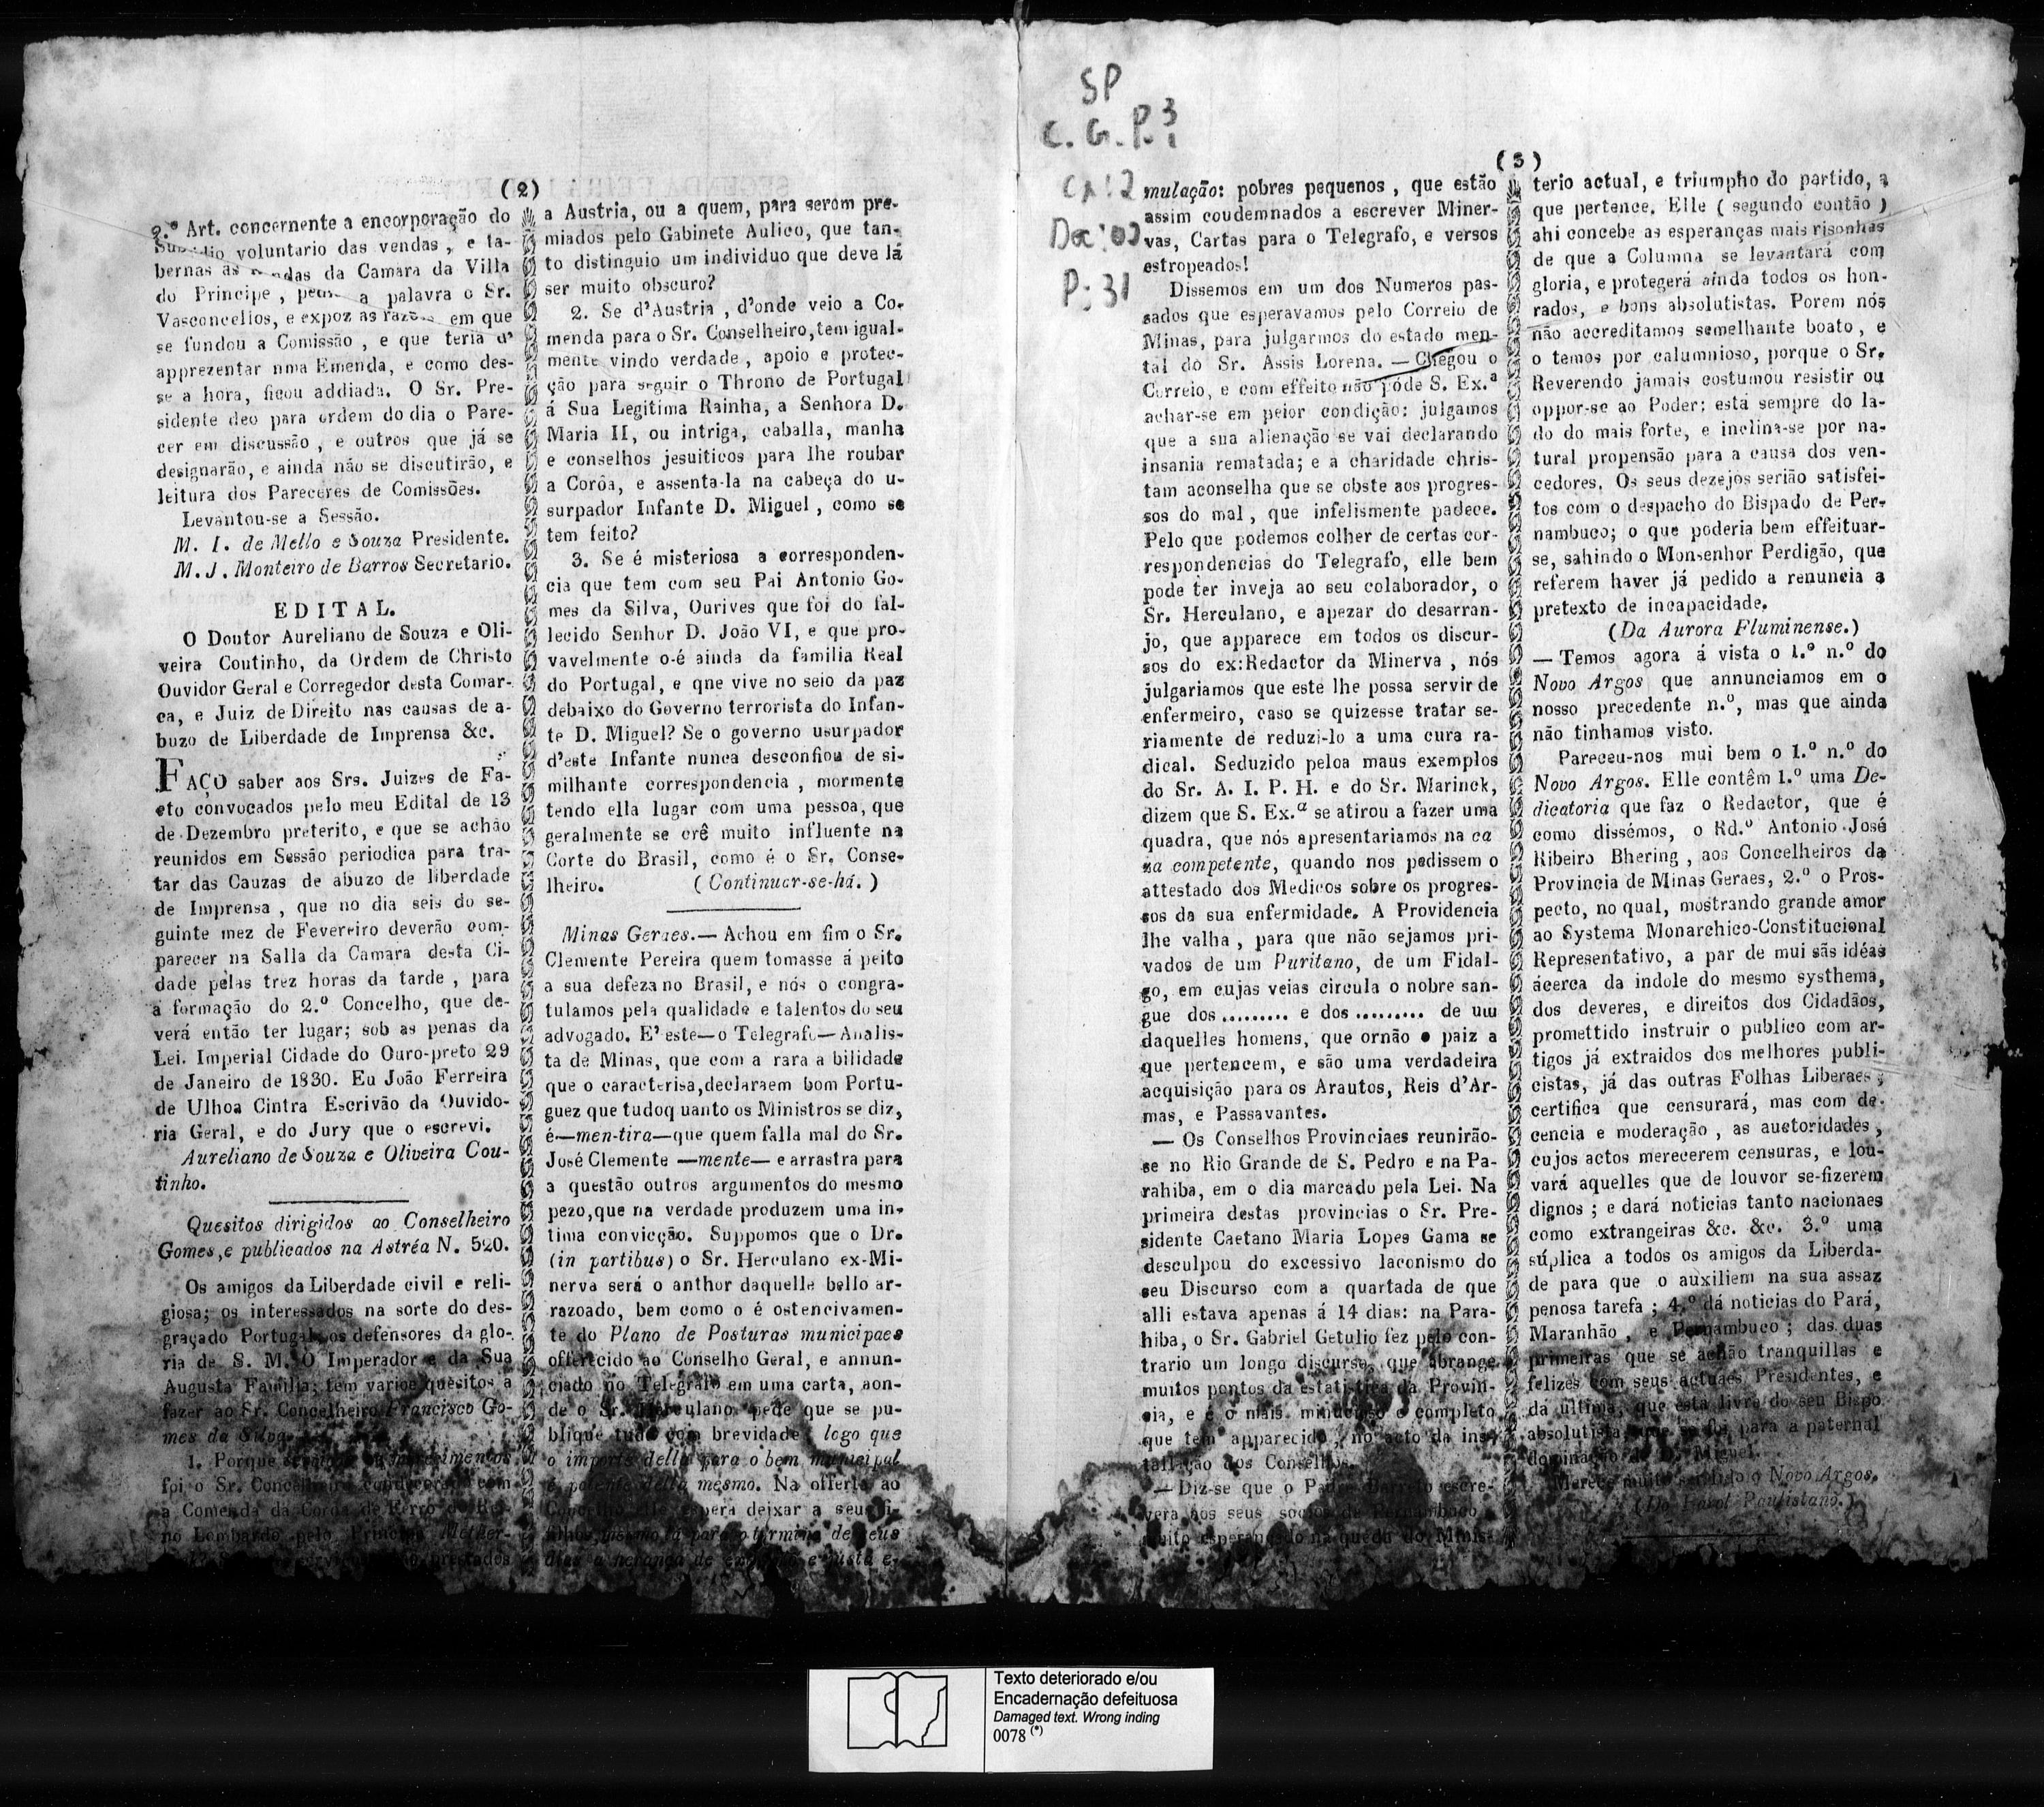 (2)
2.º Art. concernente a encorporação do
voluntario das vendas, e ta-
bernas as da Camara da Villa
do Principe, a palavra o Sr.
Vasconcellos, e expoz as em que
se fundou a Comissão, e que teria d'
apprezentar nma Emenda, e como des-
se a hora, ficou addiada. O Sr. Pre-
sidente deo para ordem do dia o Pare-
cer em discussão, e outros que já se
designarão, e ainda não se discutirão, e
leitura dos Pareceres de Comissões.
Levantou-se a Sessão.
M. I. de Mello e Souza Presidente.
M. J. Monteiro de Barros Secretario.
EDITAL.
O Doutor Aureliano de Souza e Oli-
veira Coutinho, da Ordem de Christo
Ouvidor Geral e Corregedor desta Comar-
ca, e Juiz de Direito nas causas de a-
buzo de Liberdade de Imprensa &c.
FAÇO saber aos Srs. Juizes de Fa-
cto convocados pelo meu Edital de 13
de Dezembro preterito, e que se achão
reunidos em Sessão periodica para tra-
tar das Cauzas de abuzo de liberdade
de Imprensa, que no dia seis do se-
guinte mez de Fevereiro deverão com-
parecer na Salla da Camara desta Ci-
dade pelas trez horas da tarde, para
a formação do 2.º Concelho, que de-
verá então ter lugar; sob as penas da
Lei. Imperial Cidade do Ouro-preto 29
de Janeiro de 1830. Eu João Ferreira
de Ulhoa Cintra Escrivão da Ouvido-
ria Geral, e do Jury que o escrevi.
Aureliano de Souza e Oliveira Cou-
tinho.
Quesitos dirigidos ao Conselheiro
Gomes, e publicados na Astréa N. 520.
Os amigos da Liberdade civil e reli-
giosa; os interessados na sorte do des-
graçado Portugal, os defensores da glo-
ria de S. M. O Imperador e da Sua
Augusta Familia; tem varios quesitos a
fazer ao Sr. Concelheiro Francisco Go-
mes da Silva.
1. Porque
foi o Sr. Concelheiro condecorado com
a Comenda da Coroa de Ferro do Rei-
no Lombardo pelo Principe Metter-
prestados
a Austria, ou a quem, para serem pre-
miados pelo Gabinete Aulico, que tan-
to distinguio um individuo que deve lá
ser muito obscuro?
2. Se d'Austria, d'onde veio a Co-
menda para o Sr. Conselheiro, tem igual-
mente vindo verdade, apoio e protec-
ção para seguir o Throno de Portugal
á Sua Legitima Rainha, a Senhora D.
Maria II, ou intriga, caballa, manha
e conselhos jesuiticos para lhe roubar
a Corôa, e assenta-la na cabeça do u-
surpador Infante D. Miguel, como se
tem feito?
3. Se é misteriosa a corresponden-
cia que tem com seu Pai Antonio Go-
mes da Silva, Ourives que foi do fal-
lecido Senhor D. João VI, e que pro-
vavelmente o-é ainda da familia Real
do Portugal, e qne vive no seio da paz
debaixo do Governo terrorista do Infan-
te D. Miguel? Se o governo usurpador
d'este Infante nunca desconfiou de si-
milhante correspondencia, mormente
tendo ella lugar com uma pessoa, que
geralmente se crê muito influente na
Corte do Brasil, como é o Sr. Conse-
lheiro. (Continuar-se-há.)
Minas Geraes.— Achou em fim o Sr.
Clemente Pereira quem tomasse á peito
a sua defeza no Brasil, e nós o congra-
tulamos pela qualidade e talentos do seu
advogado. E' este—o Telegrafo—Analis-
ta de Minas, que com a rara a bilidade
que o caracterisa, declara em bom Portu-
guez que tudoq uanto os Ministros se diz,
é—men-tira—que quem falla mal do Sr.
José Clemente —mente— e arrastra para
a questão outros argumentos do mesmo
pezo, que na verdade produzem uma in-
tima convicção. Suppomos que o Dr.
(in partibus) o Sr. Herculano ex-Mi-
nerva será o anthor daquelle bello ar-
razoado, bem como o é ostencivamen-
te do Plano de Posturas municipaes
offerecido ao Conselho Geral, e annun-
ciado no Telegrafo em uma carta, aon-
de o Sr. Herculano pede que se pu-
blique tudo com brevidade logo que
o importe della para o bem municipal
é patente della mesmo. Na offerta ao
Concelho elle espera deixar a seus fi-
lhinhos, mesmo já para o termino de seus
dias a herança de e justa e-
SP
C. G. P. 3
1
CX: 2
Doc: 02
P: 31
(3)
mulação: pobres pequenos, que estão
assim coudemnados a escrever Miner-
vas, Cartas para o Telegrafo, e versos
estropeados!
Dissemos em um dos Numeros pas-
sados que esperavamos pelo Correio de
Minas, para julgarmos do estado men-
tal do Sr. Assis Lorena. — Chegou o
Correio, e com effeito não póde S. Ex.ª
achar-se em peior condição: julgamos
que a sua alienação se vai declarando
insania rematada; e a charidade chris-
tam aconselha que se obste aos progres-
sos do mal, que infelismente padece.
Pelo que podemos colher de certas cor-
respondencias do Telegrafo, elle bem
pode ter inveja ao seu colaborador, o
Sr. Herculano, e apezar do desarran-
jo, que apparece em todos os discur-
sos do ex:Redactor da Minerva, nós
julgariamos que este lhe possa servir de
enfermeiro, caso se quizesse tratar se-
riamente de reduzi-lo a uma cura ra-
dical. Seduzido peloa maus exemplos
do Sr. A. I. P. H. e do Sr. Marinck,
dizem que S. Ex.ª se atirou a fazer uma
quadra, que nós apresentariamos na ca
za competente, quando nos pedissem o
attestado dos Medicos sobre os progres-
sos da sua enfermidade. A Providencia
lhe valha, para que não sejamos pri-
vados de um Puritano, de um Fidal-
go, em cujas veias circula o nobre san-
gue dos ......... e dos ......... de um
daquelles homens, que ornão o paiz a
que pertencem, e são uma verdadeira
acquisição para os Arautos, Reis d'Ar-
mas, e Passavantes.
— Os Conselhos Provinciaes reunirão-
se no Rio Grande de S. Pedro e na Pa-
rahiba, em o dia marcado pela Lei. Na
primeira destas provincias o Sr. Pre-
sidente Caetano Maria Lopes Gama se
desculpou do excessivo laconismo do
seu Discurso com a quartada de que
alli estava apenas á 14 dias: na Para-
hiba, o Sr. Gabriel Getulio fez pelo con-
trario um longo discurso, que abrange
muitos pontos da estatistica da Provin-
cia, e é o mais minucioso e completo
que tem apparecido, no acto da ins-
tallação dos Conselhos.
— Diz-se que o Padre Barreto escre-
vera aos seus socios de Pernambuco
muito esperançado na queda do Minis-
terio actual, e triumpho do partido, a
que pertence. Elle (segundo contão)
ahi concebe as esperanças mais risonhas
de que a Columna se levantará com
gloria, e protegerá ainda todos os hon-
rados, e bons absolutistas. Porem nós
não accreditamos semelhante boato, e
o temos por calumnioso, porque o Sr.
Reverendo jamais costumou resistir ou
oppor-se ao Poder; está sempre do la-
do do mais forte, e inclina-se por na-
tural propensão para a causa dos ven-
cedores. Os seus dezejos serião satisfei-
tos com o despacho do Bispado de Per-
nambuco; o que poderia bem effeituar-
se, sahindo o Monsenhor Perdigão, que
referem haver já pedido a renuncia a
pretexto de incapacidade.
(Da Aurora Fluminense.)
— Temos agora á vista o 1.º n.º do
Novo Argos que annunciamos em o
nosso precedente n.º, mas que ainda
não tinhamos visto.
Pareceu-nos mui bem o 1.º n.º do
Novo Argos. Elle contêm 1.º uma De-
dicatoria que faz o Redactor, que é
como dissémos, o Rd.º Antonio José
Ribeiro Bhering, aos Concelheiros da
Provincia de Minas Geraes, 2.º o Pros-
pecto, no qual, mostrando grande amor
ao Systema Monarchico-Constitucional
Representativo, a par de mui sãs idéas
ácerca da indole do mesmo systhema,
dos deveres, e direitos dos Cidadãos,
promettido instruir o publico com ar-
tigos já extraidos dos melhores publi-
cistas, já das outras Folhas Liberaes;
certifica que censurará, mas com de-
cencia e moderação, as auctoridades,
cujos actos merecerem censuras, e lou-
vará aquelles que de louvor se-fizerem
dignos; e dará noticias tanto nacionaes
como extrangeiras &c. &c. 3.º uma
súplica a todos os amigos da Liberda-
de para que o auxiliem na sua assaz
penosa tarefa; 4.º dá noticias do Pará,
Maranhão, e Pernambuco; das duas
primeiras que se achão tranquillas e
felizes com seus actuaes Presidentes, e
da ultima, que está livre do seu Bispo
absolutista, que se foi para a paternal
dominação de D. Miguel.
Merece muito ser lido o Novo Argos.
(Do Farol Paulistano.)
Texto deteriorado e/ou
Encadernação defeituosa
Damaged text. Wrong inding
0078 (*)